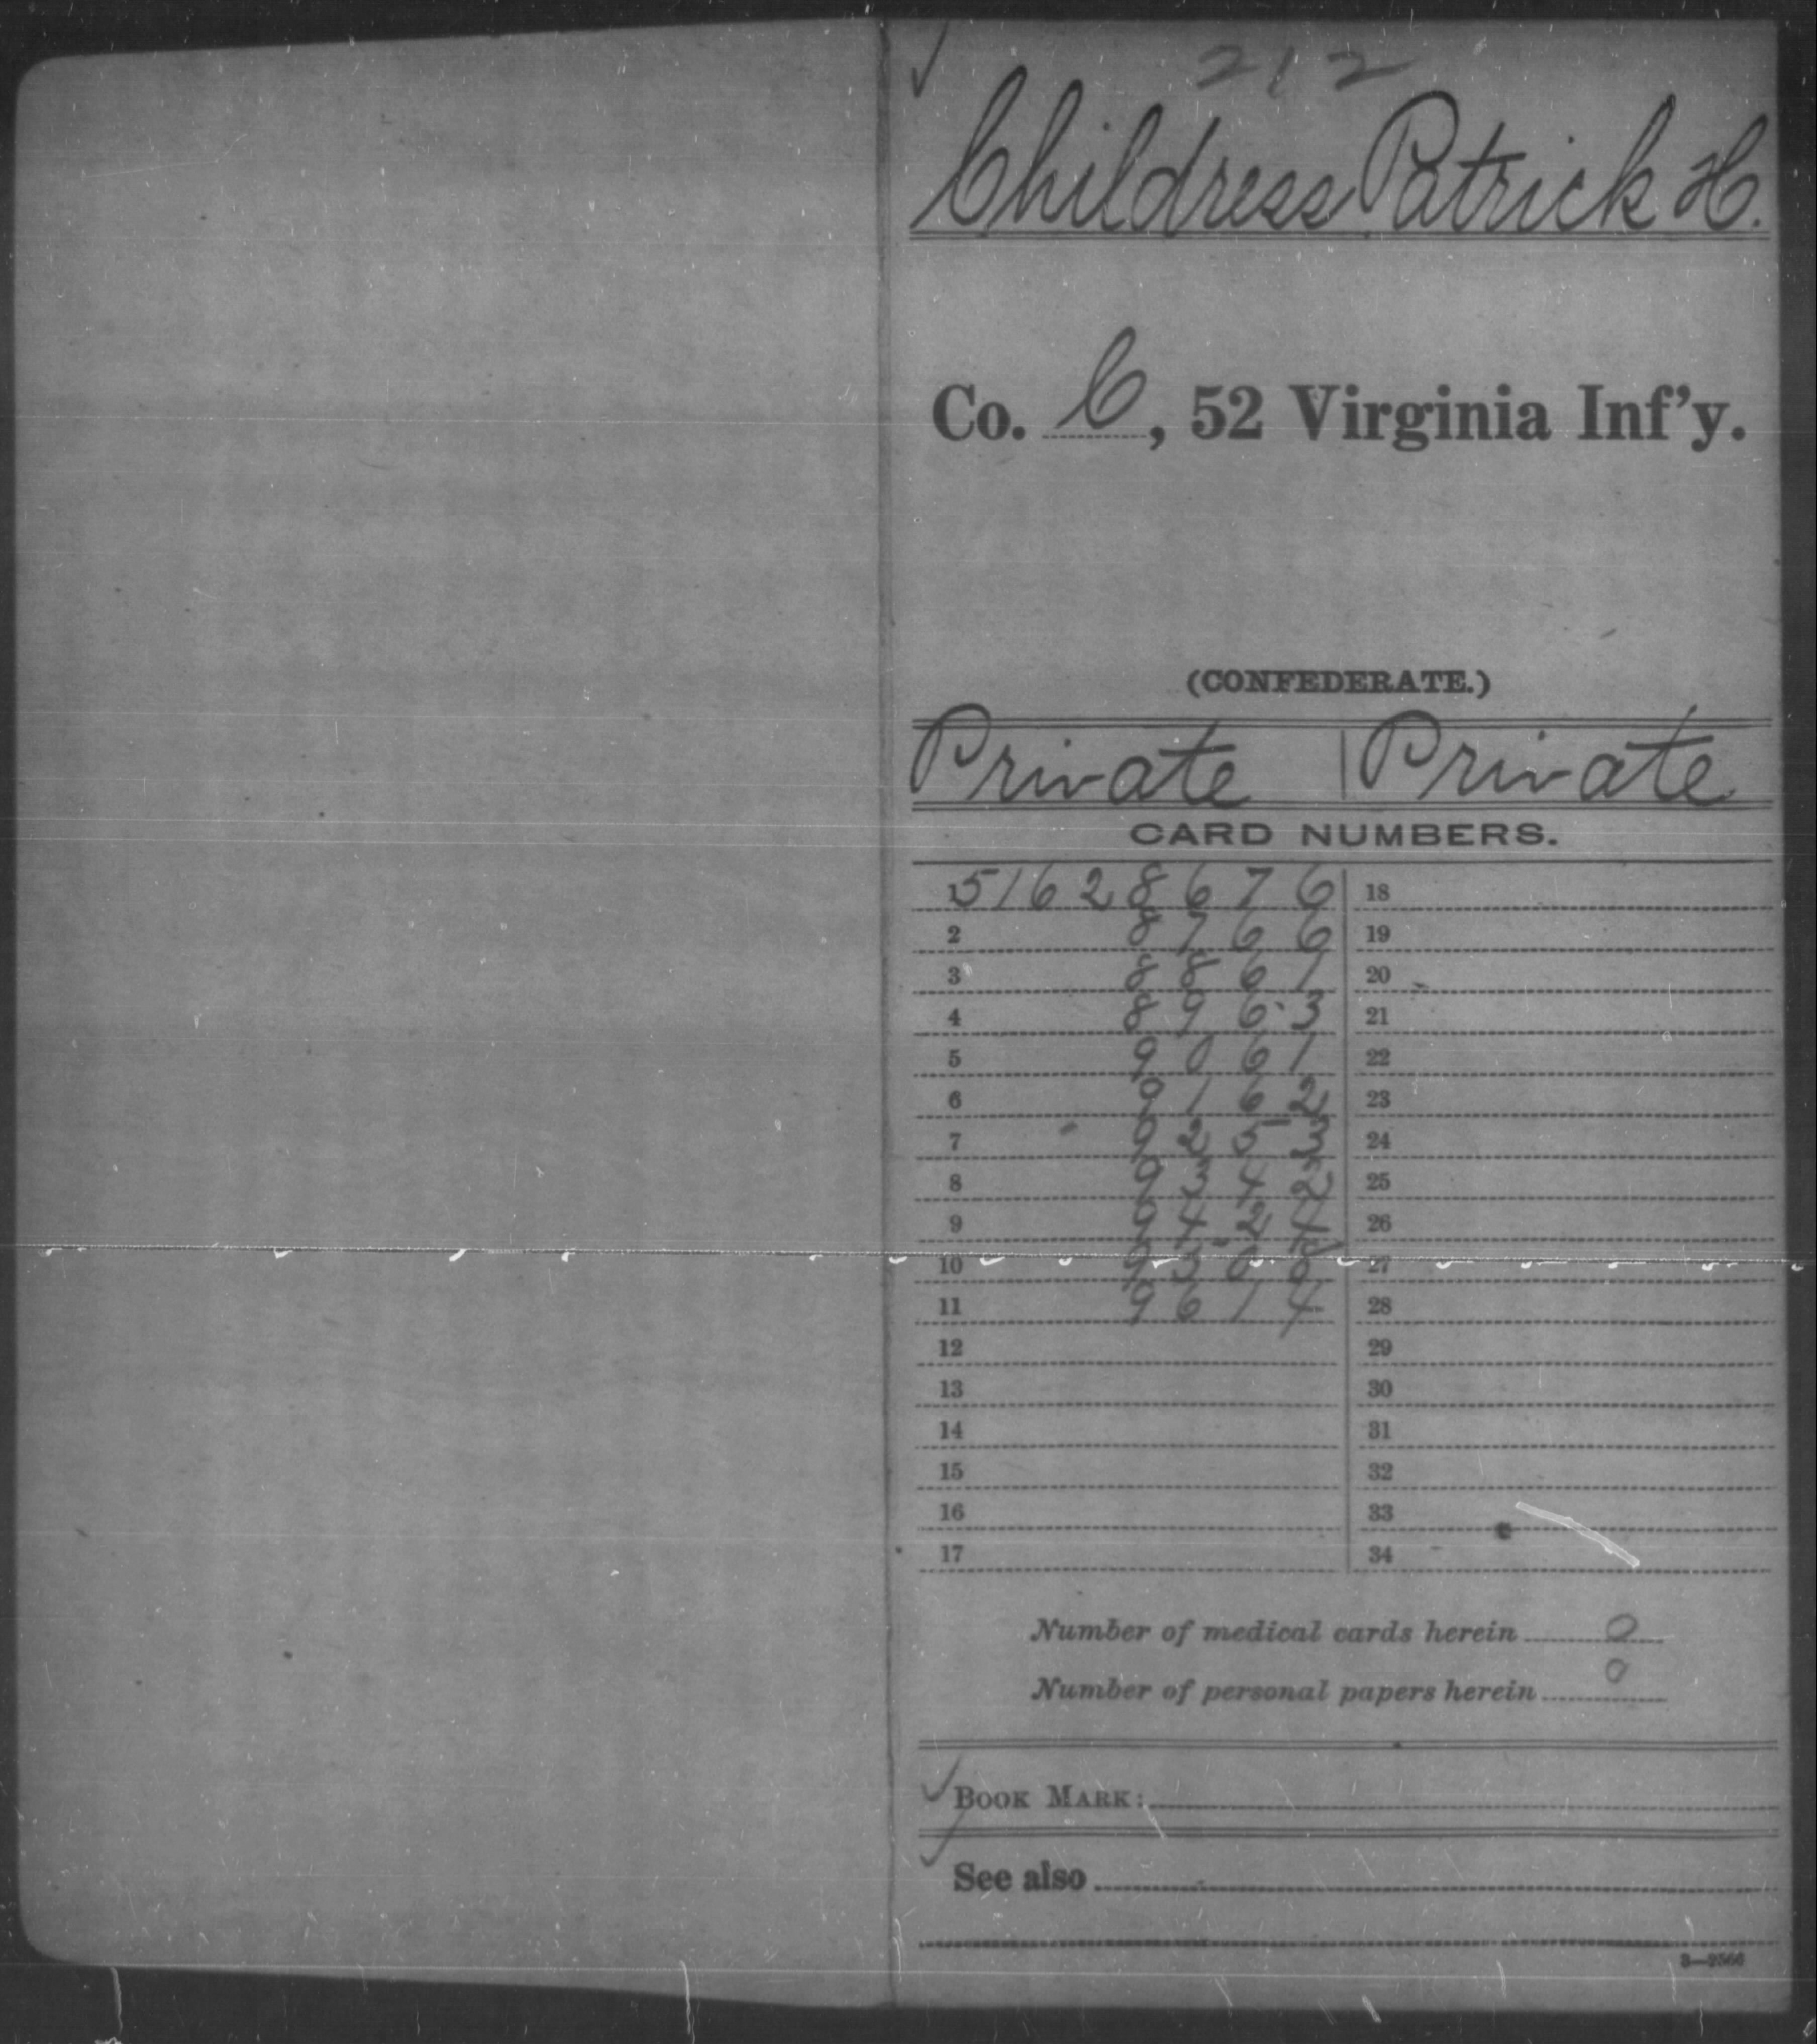 212
Childress Patrick H.
Co. C, 52 Virginia Inf'y.
(CONFEDERATE.)
Private | Private
CARD NUMBERS.
1 51628676 18
2 8766 19
3 8861 20
4 8963 21
5 9061 22
6 9162 23
7 9253 24
8 9342 25
9 9424 26
10 27
11 9614 28
12 29
13 30
14 31
15 32
16 33
17 34
Number of medical cards herein 0
Number of personal papers herein 0
BOOK MARK:
See also